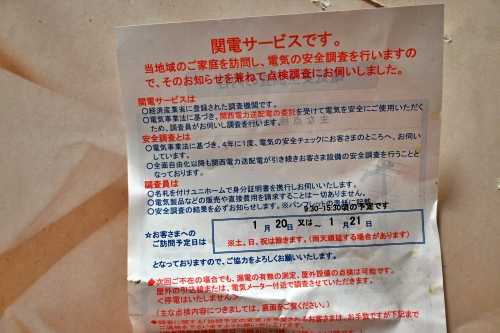 関電サービスです。
当地域のご家庭を訪問し、電気の安全調査を行いますの
で、そのお知らせを兼ねて点検調査にお伺いしました。
関電サービスは
○経済産業省に登録された調査機関です。
○電気事業法に基づき、関西電力送配電の委託を受けて電気を安全にご使用いただく
ため、調査員がお伺いし調査を行います。
安全調査とは
○電気事業法に基づき、4年に1度、電気の安全チェックにお客さまのところへ、お伺い
しています。
○全面自由化以降も関西電力送配電が引き続きお客さま設備の安全調査を行うことと
なっております。
調査員は
○名札を付けユニホームで身分証明書を携行しお伺いいたします。
○電気製品などの販売や直接費用を請求することは一切ありません。
○安全調査の結果を必ずお知らせします。※パンフレットの表紙に記載
9:30-15:30頃の予定です
☆お客さまへの
ご訪問予定日は
1月20日又は~1月21日
※土、日、祝は除きます。(雨天順延する場合があります)
となっておりますので、ご協力をよろしくお願いいたします。
●次回ご不在の場合でも、漏電の有無の測定、屋外設備の点検は可能です。
屋外の引込線または、電気メーター付近で調査させていただきます。
<停電はいたしません>
(主な点検内容につきましては、裏面をご覧ください。)